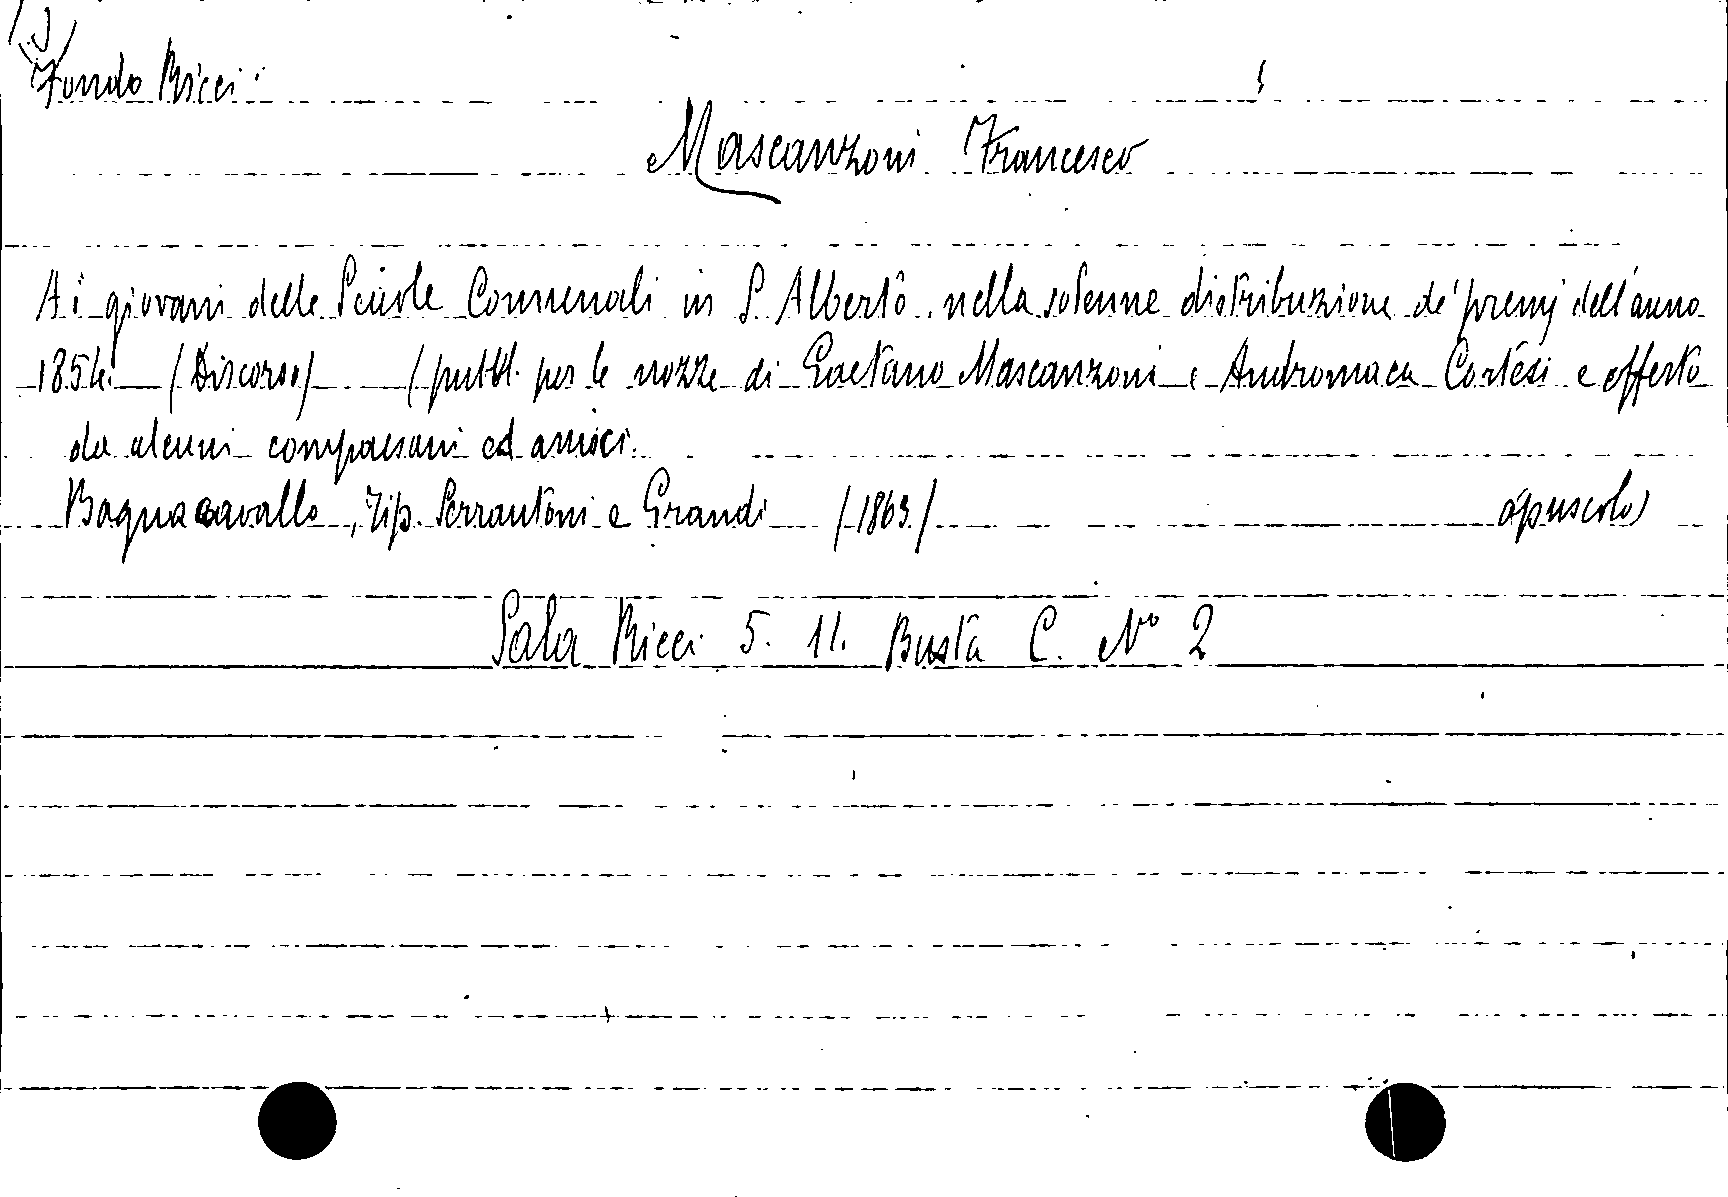 Fondo Ricci
Mascanzoni Francesco
Ai giovani delle Scuole Comunali in S. Alberto nella solenne distribuzione de' premj dell'anno
1854. (Discorso) (pubbl. per le nozze di Gaetano Mascanzoni e Andromaca Cortesi e offerto
da alcuni compaesani ed amici.
Bagnacavallo, Tip. Serrantoni e Grandi (1863) opuscolo
Sala Ricci 5. 11. Busta C. N° 2